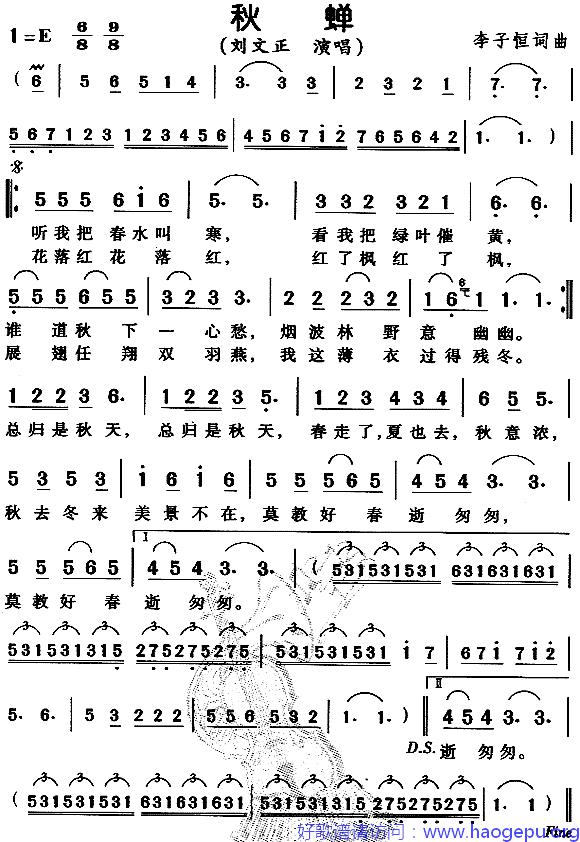 秋 蝉
1=E 6/8 9/8 (刘文正 演唱) 李子恒词曲
( 6 | 5 6 5 1 4 | 3. 3 3 | 2 3 2 1 | 7. 7. |
5 6 7 1 2 3 1 2 3 4 5 6 | 4 5 6 7 1 2 7 6 5 6 4 2 | 1. 1. ) |
5 5 5 6 1 6 | 5. 5. | 3 3 2 3 2 1 | 6. 6. |
听我把 春水叫 寒， 看我把 绿叶催 黄，
花落红 花 落 红， 红了枫 红 了 枫，
5 5 5 6 5 5 | 3 2 3 3. | 2 2 2 3 2 2 | 1 6 1 1. 1. :
谁 道秋 下 一 心愁， 烟波林 野意 幽幽。
展 翅任 翔 双 羽燕， 我这薄 衣 过得残冬。
1 2 2 3 6. | 1 2 2 3 5. | 1 2 3 4 3 4 | 6 5 5. |
总归是秋天， 总归是秋天， 春走了,夏也去， 秋意浓，
5 3 5 3 | 1 6 1 6 | 5 5 5 6 5 | 4 5 4 3. 3. |
秋去冬来 美景不在，莫教好 春 逝 匆匆，
5 5 5 6 5 | I 4 5 4 3. 3. | ( 5 3 1 5 3 1 5 3 1 6 3 1 6 3 1 6 3 1 |
莫教好 春 逝 匆匆。
5 3 1 5 3 1 5 3 1 5 2 7 5 2 7 5 2 7 5 | 5 3 1 5 3 1 5 3 1 1 7 | 6 7 1 7 1 2 |
5. 6. | 3 2 2 2 | 5 5 6 5 3 2 | 1. 1. ) | II 4 5 4 3. 3. |
D.S. 逝 匆匆。
( 5 3 1 5 3 1 5 3 1 6 3 1 6 3 1 6 3 1 | 5 3 1 5 3 1 5 3 1 5 2 7 5 2 7 5 2 7 5 | 1. 1. )
好歌谱请访问：www.haogepu.top Fine